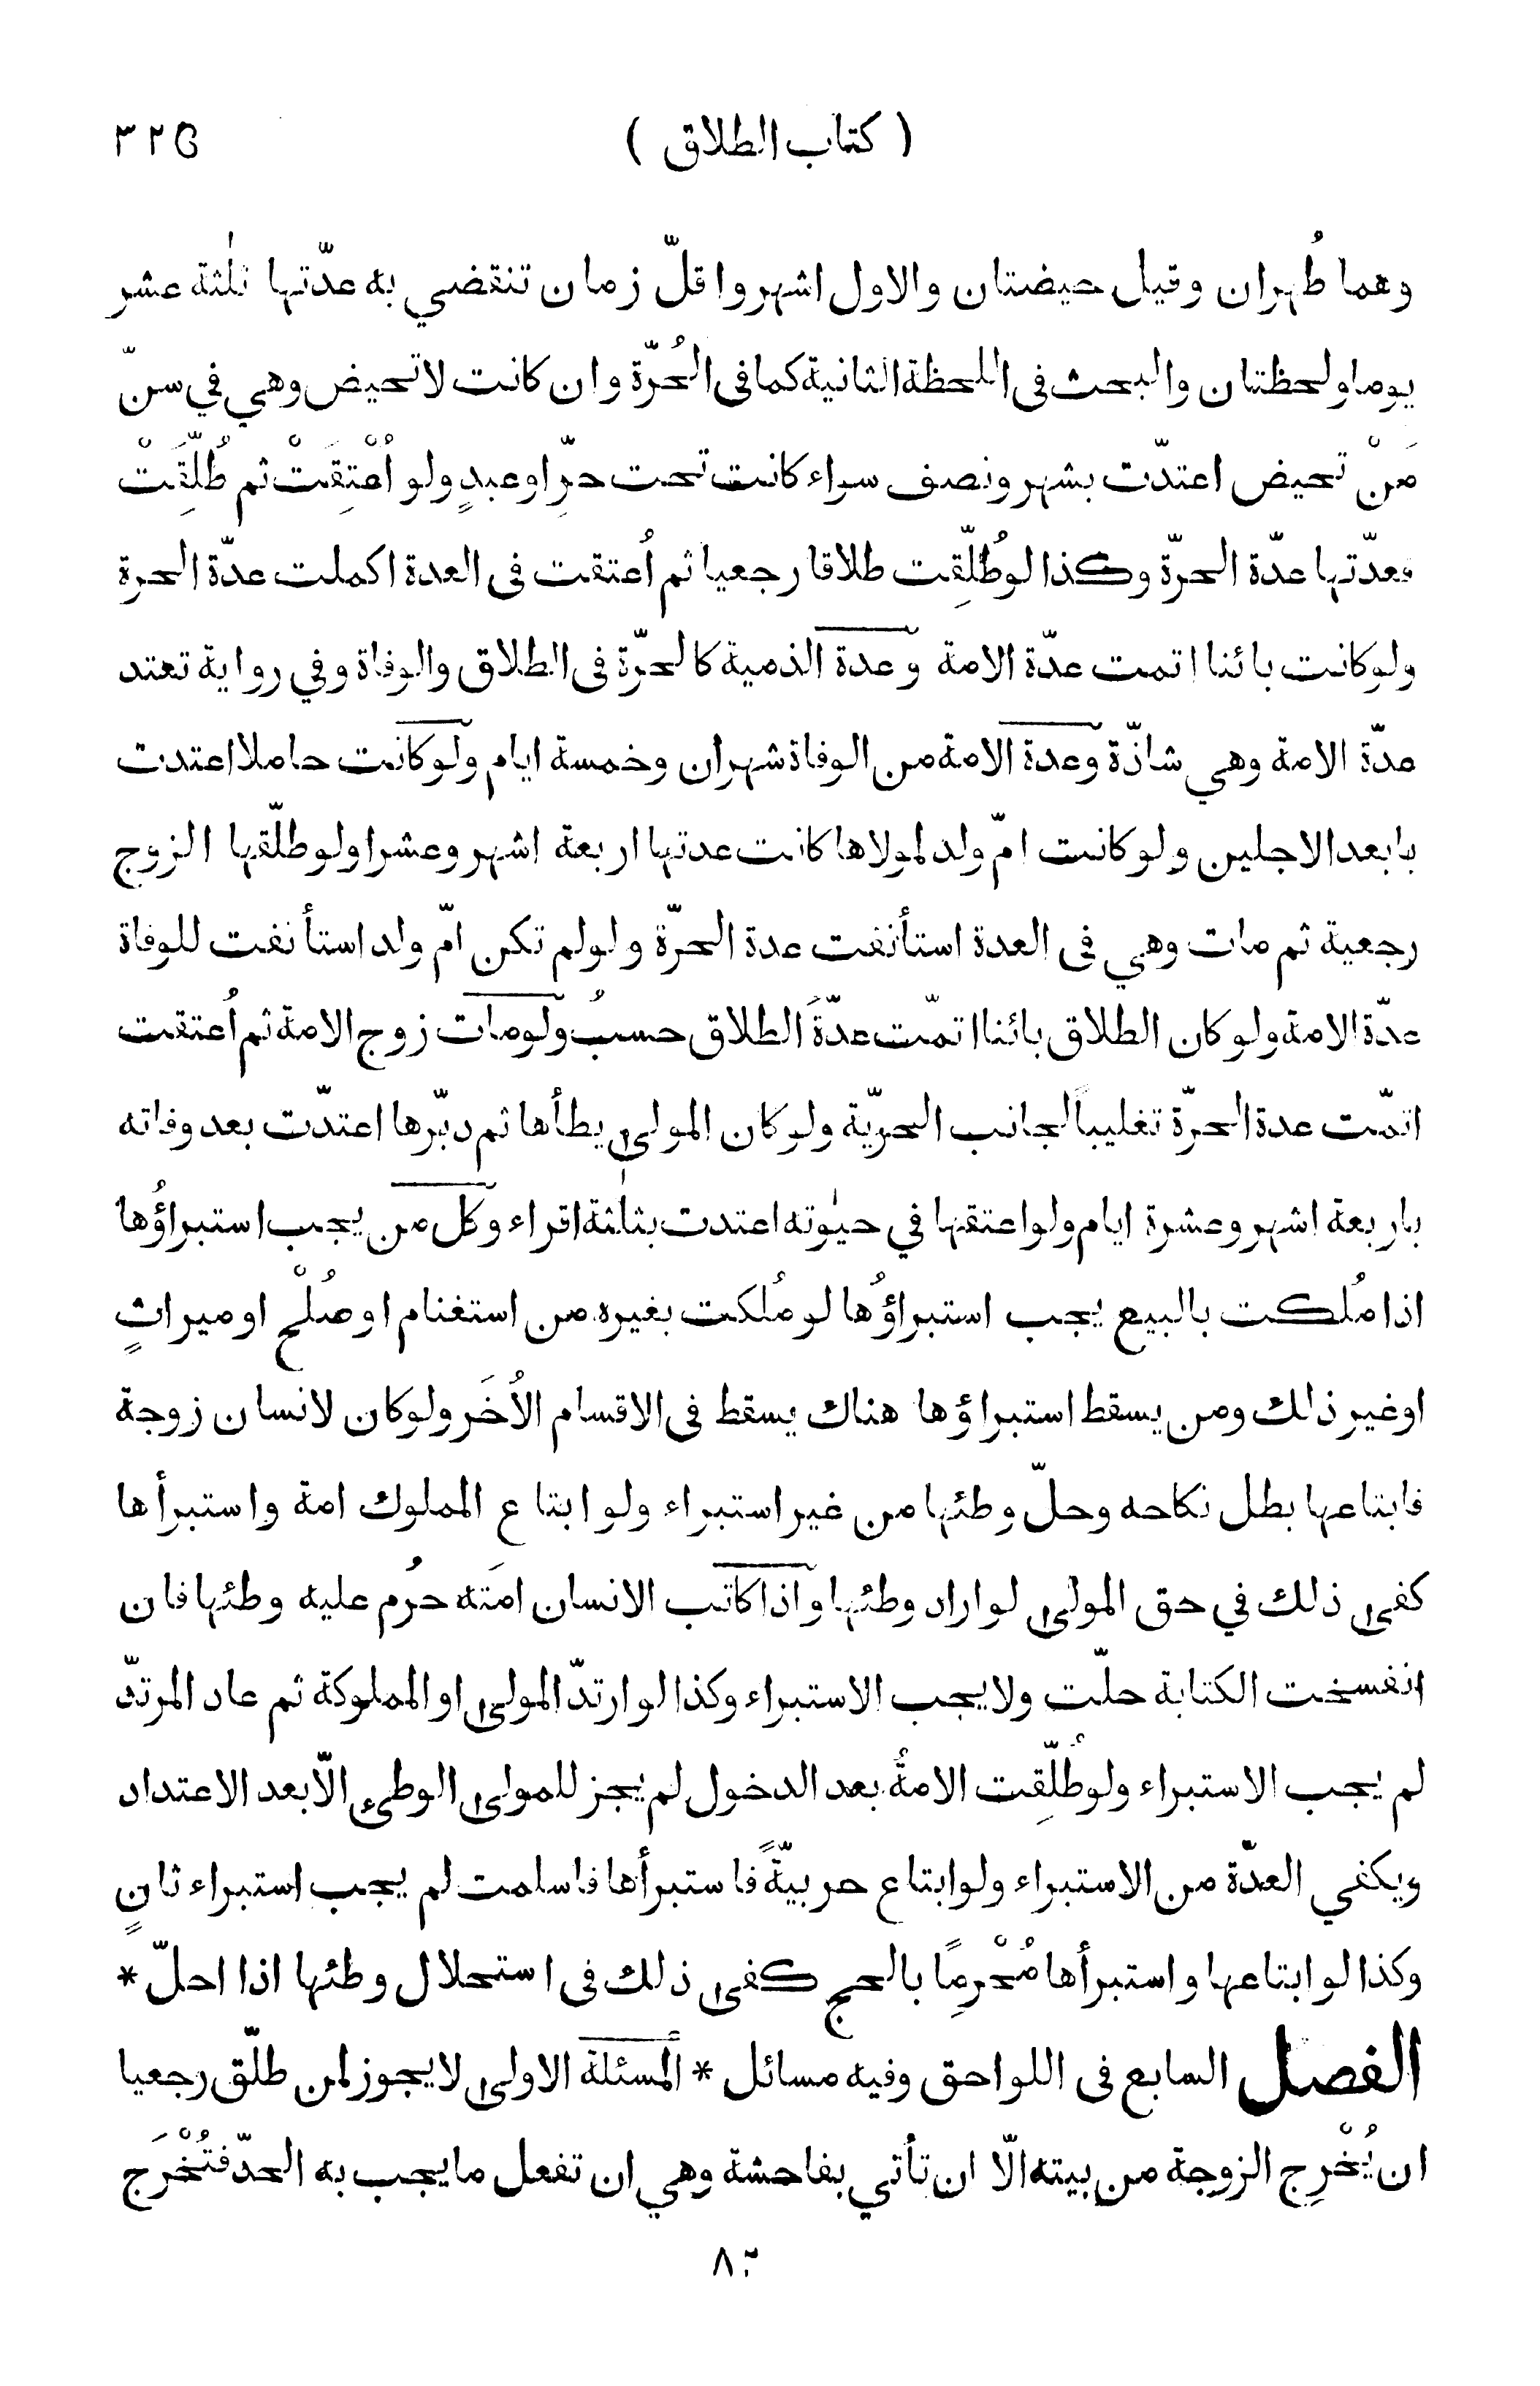 ( كتاب الطلاق ) ٣٢٥
وهما طُهران وقيل حيضتان والاول اشهر واقلّ زمان تنقضي به عدّتها ثلٰثة عشر
يوما ولحظتان والبحث فى اللحظة الثانية كما فى الحُرّة وان كانت لا تحيض وهي في سنّ
مَنْ تحيض اعتدّت بشهر ونصف سواء كانت تحت حرّ او عبدٍ ولو اُعْتِقَتْ ثم طُلِّقَتْ
فعدّتها عدّة الحرّة وكذا لو طُلِّقت طلاقا رجعيا ثم اُعتقت فى العدة اكملت عدّة الحرة
ولو كانت بائنا اتمت عدّة الامة وعدة الذمية كالحرّة فى الطلاق والوفاة وفي رواية تعتد
عدّة الامة وهي شاذّة وعدة الامة من الوفاة شهران وخمسة ايام ولو كانت حاملا اعتدت
بابعد الاجلين ولو كانت امّ ولد لمولاها كانت عدتها اربعة اشهر وعشرا ولو طلّقها الزوج
رجعية ثم مات وهي فى العدة استأنفت عدة الحرّة ولو لم تكن امّ ولد استأنفت للوفاة
عدّة الامة ولو كان الطلاق بائنا اتمّت عدّةَ الطلاق حسبُ ولو مات زوج الامة ثم اُعتقت
اتمّت عدة الحرّة تغليباً لجانب الحريّة ولو كان المولىٰ يطأها ثم دبّرها اعتدّت بعد وفاته
باربعة اشهر وعشرة ايام ولو اعتقها في حيٰوته اعتدت بثلٰثة اقراء وكل من يجب استبراؤُها
اذا مُلكت بالبيع يجب استبراؤُها لو مُلكت بغيره من استغنام او صُلْح او ميراثٍ
او غير ذلك ومن يسقط استبراؤها هناك يسقط فى الاقسام الاُخَر ولو كان لانسان زوجة
فابتاعها بطل نكاحه وحلّ وطئها من غير استبراء ولو ابتاع المملوك امة واستبرأها
كفىٰ ذلك في حق المولىٰ لو اراد وطئها واذا كاتب الانسان امَته حرُم عليه وطئها فان
انفسخت الكتابة حلّت ولا يجب الاستبراء وكذا لو ارتدّ المولىٰ او المملوكة ثم عاد المرتدّ
لم يجب الاستبراء ولو طُلِّقت الامةُ بعد الدخول لم يجز للمولىٰ الوطىء الّا بعد الاعتداد
ويكفي العدّة من الاستبراء ولو ابتاع حربيّةً فاستبرأها فاسلمت لم يجب استبراء ثانٍ
وكذا لو ابتاعها واستبرأها مُحْرِمًا بالحج كفىٰ ذلك فى استحلال وطئها اذا احلّ *
الفصل السابع فى اللواحق وفيه مسائل * المسئلة الاولىٰ لا يجوز لمن طلّق رجعيا
ان يُخْرِج الزوجة من بيته الّا ان تأتي بفاحشة وهي ان تفعل ما يجب به الحدّ فتُخْرَج